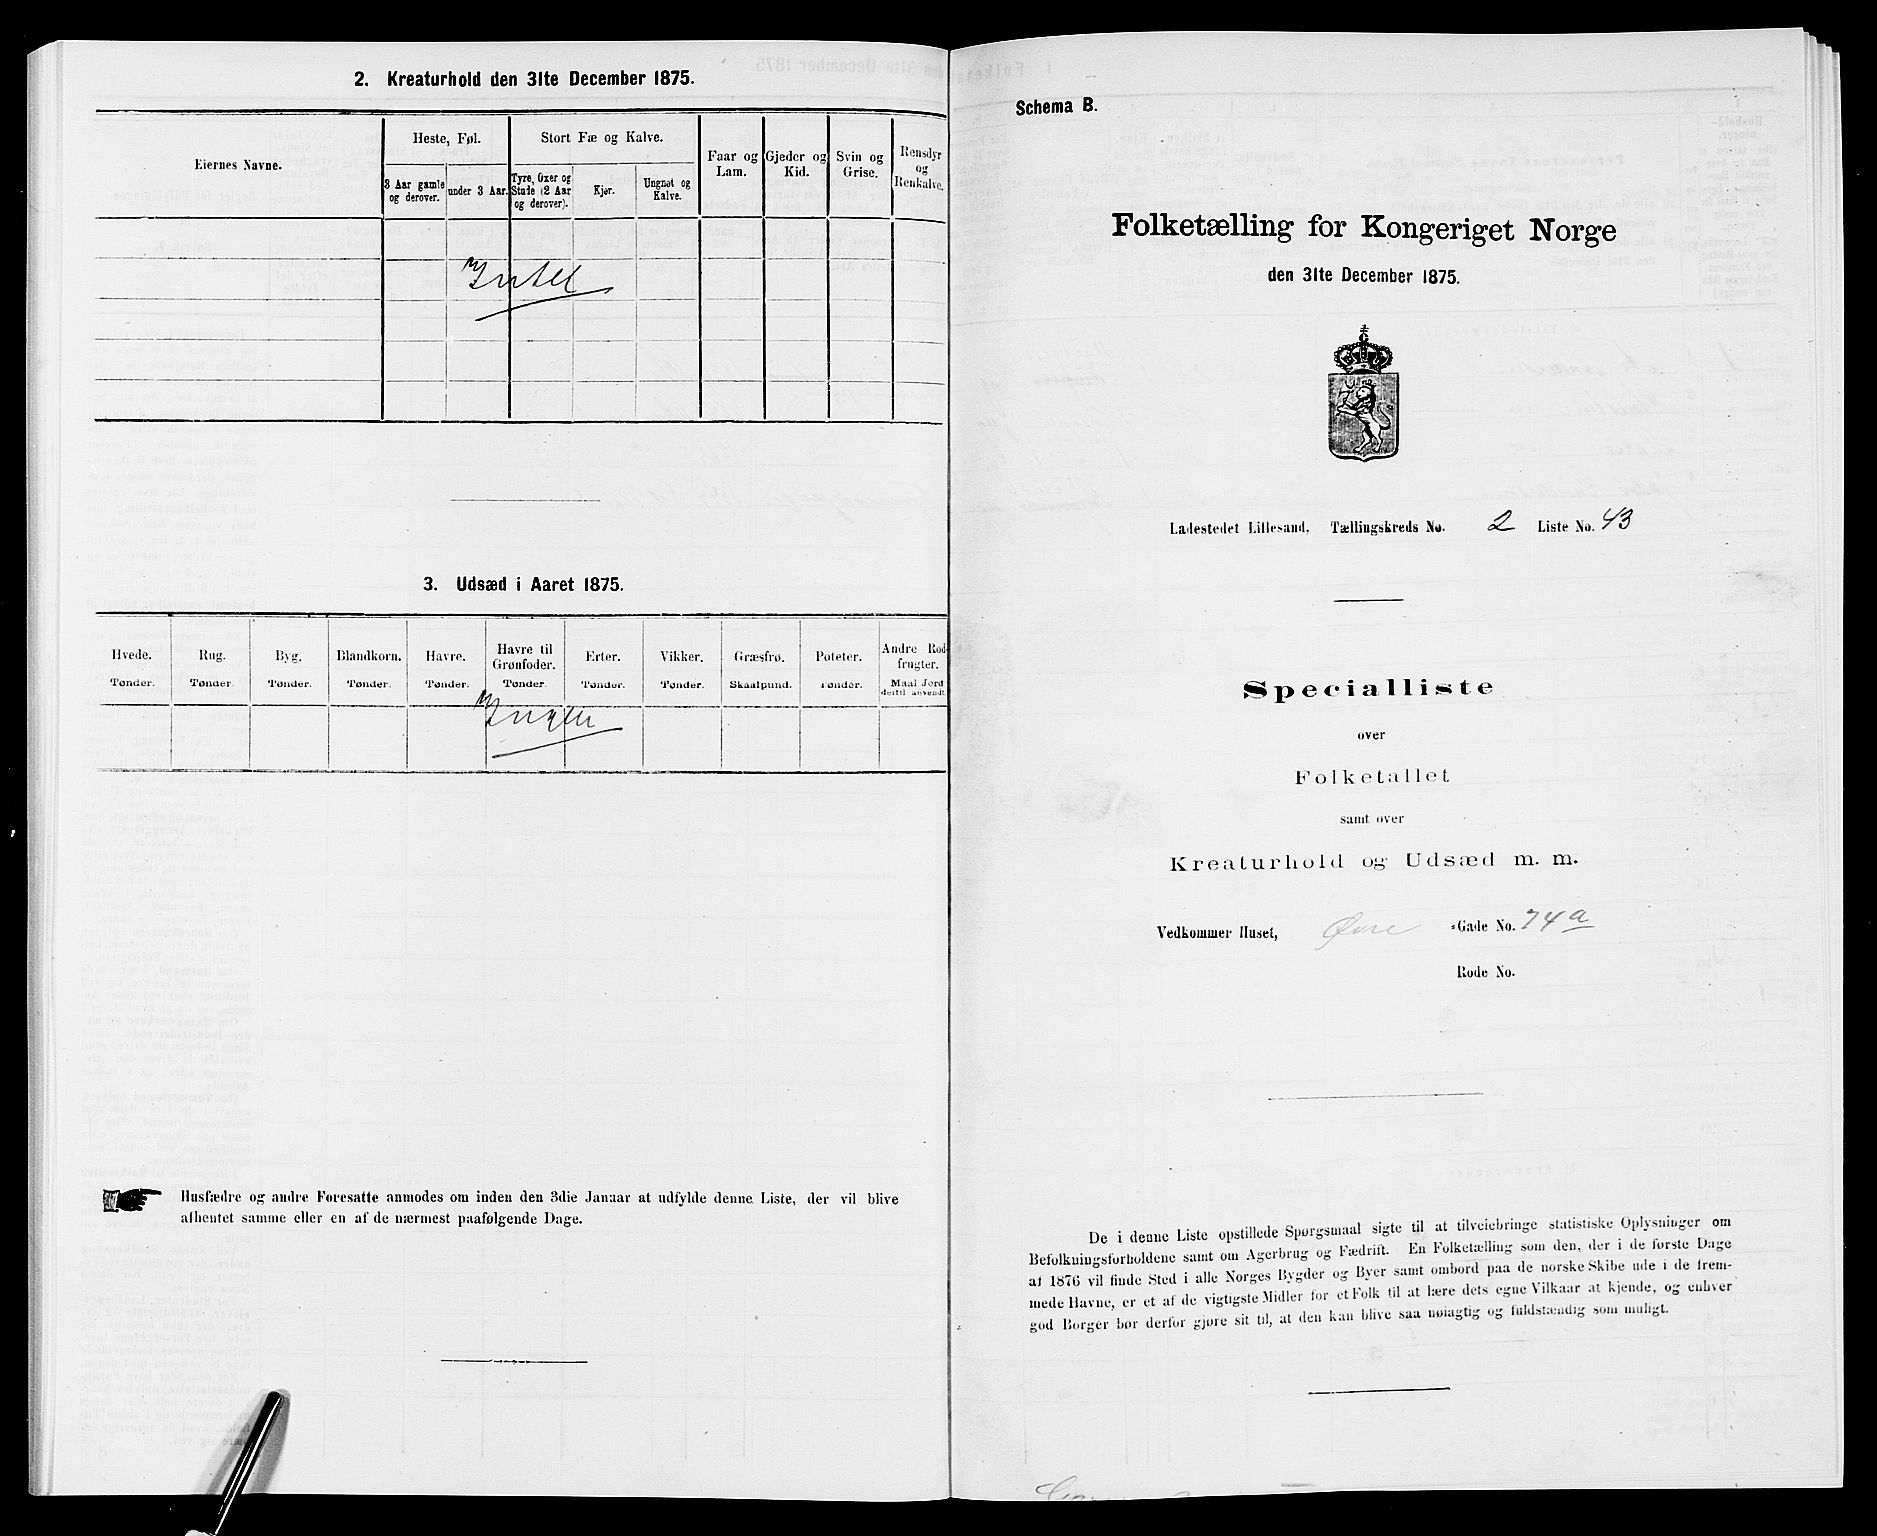 2. Kreaturhold den 31te December 1875.
Eiernes Navne.
Heste, Føl.
3 Aar gamle og derover.
under 3 Aar.
Stort Fæ og Kalve.
Tyre, Oxer og Stude (2 Aar og derover).
Kjør.
Ungnøt og Kalve.
Faar og Lam.
Gjeder og Kid.
Svin og Grise.
Rensdyr og Renkalve.
Intet
3. Udsæd i Aaret 1875.
Hvede. Rug. Byg. Blandkorn. Havre. Havre til Grønfoder. Erter. Vikker. Græsfrø. Poteter. Andre Rodfrugter.
Tønder. Tønder. Tønder. Tønder. Tønder. Tønder. Tønder. Tønder. Skaalpund. Tønder. Maal Jord dertil anvendt.
Ingen
Husfædre og andre Foresatte anmodes om inden den 3die Januar at udfylde denne Liste, der vil blive
afhentet samme eller en af de nærmest paafølgende Dage.
Schema B.
Folketælling for Kongeriget Norge
den 31te December 1875.
Ladestedet Lillesand. Tællingskreds No. 2 Liste No. 43
Specialliste
over
Folketallet
samt over
Kreaturhold og Udsæd m. m.
Vedkommer Huset, Øvre -Gade No. 74a
Rode No.
De i denne Liste opstillede Spørgsmaal sigte til at tilveiebringe statistiske Oplysninger om
Befolkningsforholdene samt om Agerbrug og Fædrift. En Folketælling som den, der i de første Dage
af 1876 vil finde Sted i alle Norges Bygder og Byer samt ombord paa de norske Skibe ude i de frem-
mede Havne, er et af de vigtigste Midler for et Folk til at lære dets egne Vilkaar at kjende, og enhver
god Borger bør derfor gjøre sit til, at den kan blive saa nøiagtig og fuldstændig som muligt.